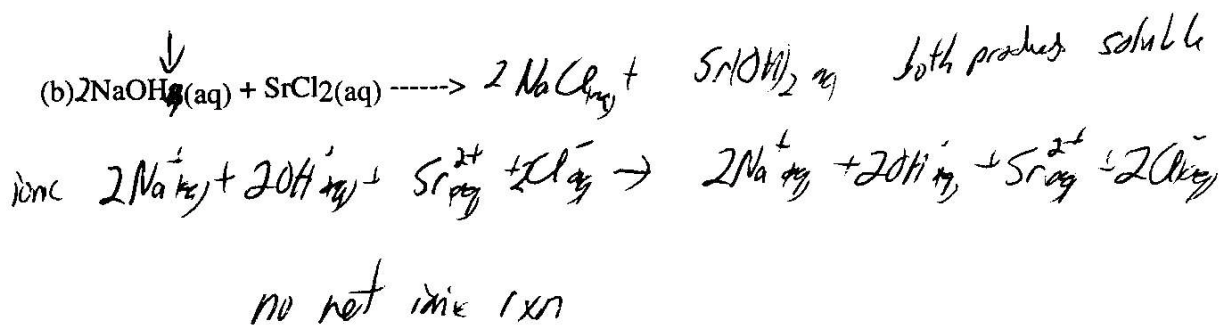 (b) 2NaOH(aq) + SrCl2(aq) ------> 2 NaCl(aq) + Sr(OH)2 aq both products soluble
ionic 2Na+(aq) + 2OH-(aq) + Sr2+ aq + 2Cl- aq → 2Na+ aq + 2OH- aq + Sr2+ aq + 2Cl-(aq)
no net ionic rxn